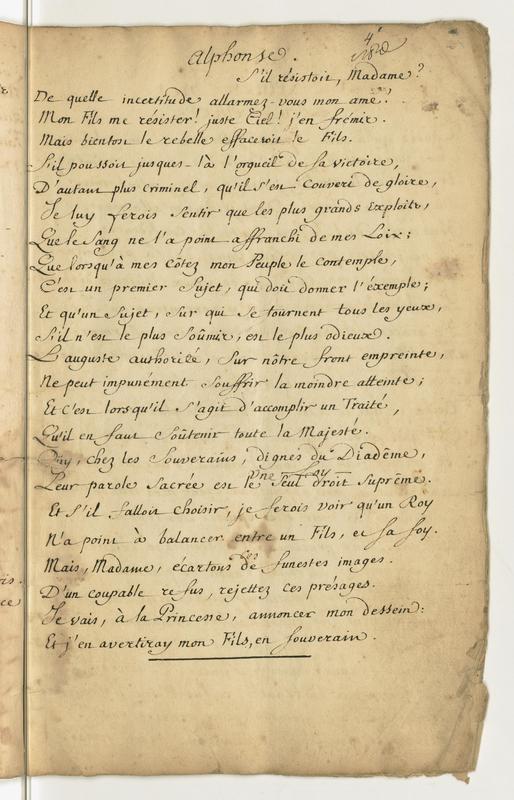 Alphonse.
S'il résistoit, Madame?
De quelle incertitude allarmez-vous mon ame.
Mon Fils me résister! juste Ciel! j'en frémir.
Mais bientost le rebelle effaceroit le Fils.
S'il poussoit jusques-là l'orgueil de sa victoire,
D'autant plus criminel, qu'il s'est couvert de gloire,
Je luy ferois sentir que les plus grands Exploits,
Que le sang ne l'a point affranchi de mes Loix;
Que lorsqu'à mes côtez mon Peuple le contemple,
C'est un premier Sujet, qui doit donner l'éxemple;
Et qu'un Sujet, sur qui se tournent tous les yeux,
S'il n'est le plus soûmis, est le plus odieux.
L'auguste authorité, sur nôtre front empreinte,
Ne peut impunément souffrir la moindre atteinte;
Et c'est lorsqu'il s'agit d'accomplir un Traité,
Qu'il en faut soûtenir toute la Majesté.
chez les Souverains, dignes du Diadême,
Leur parole Sacrée est le seul droit suprême.
une Loy
Et s'il falloit choisir, je ferois voir qu'un Roy
N'a point à balancer entre un Fils, et sa foy.
Mais, Madame, écartons de funestes images.
ces
D'un coupable refus, rejettez ces présages.
Je vais, à la Princesse, annoncer mon dessein:
Et j'en avertiray mon Fils, en souverain.